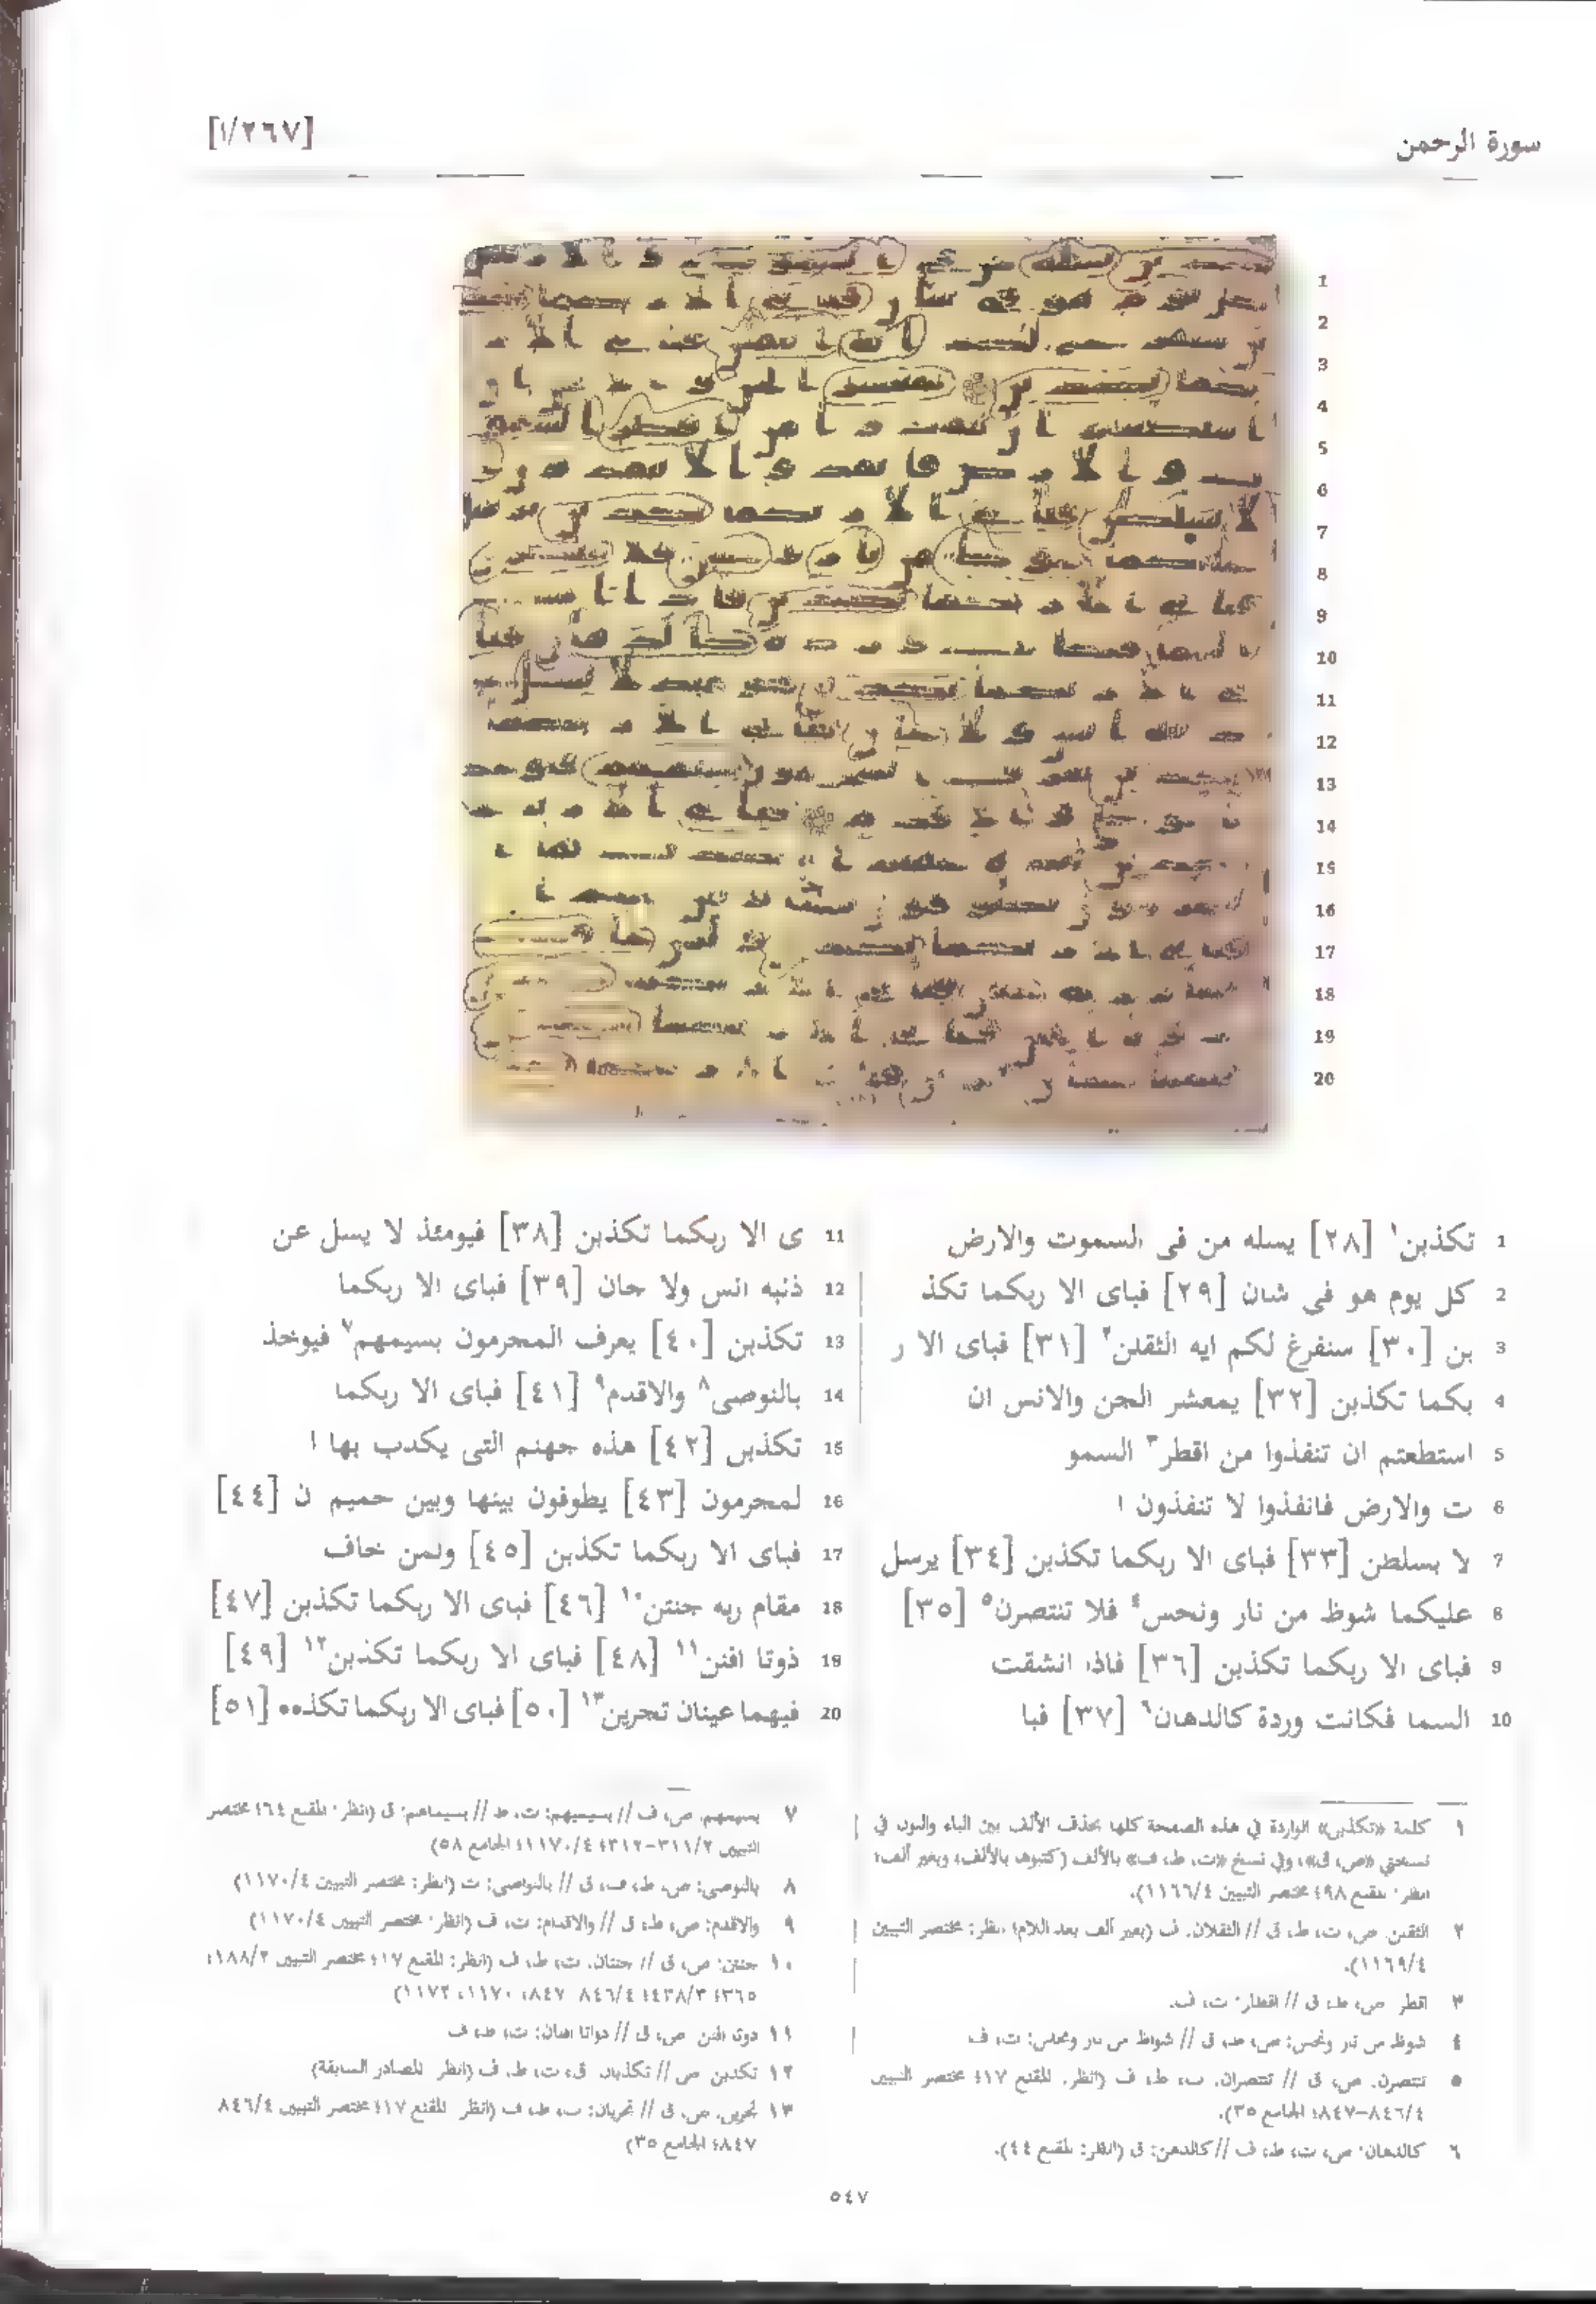 سورة الرحمن
[١/٢٦٧]
1 تكذبن١ [٢٨] يسله من فى السموت والارض
2 كل يوم هو فى شان [٢٩] فباى الا ربكما تكذ
3 بن [٣٠] سنفرغ لكم ايه الثقلن٢ [٣١] فباى الا ر
4 بكما تكذبن [٣٢] يمعشر الجن والانس ان
5 استطعتم ان تنفذوا من اقطر٣ السمو
6 ت والارض فانفذوا لا تنفذون ا
7 لا بسلطن [٣٣] فباى الا ربكما تكذبن [٣٤] يرسل
8 عليكما شوظ من نار ونحس٤ فلا تنتصرن٥ [٣٥]
9 فباى الا ربكما تكذبن [٣٦] فاذا انشقت
10 السما فكانت وردة كالدهان٦ [٣٧] فبا
11 ى الا ربكما تكذبن [٣٨] فيومئذ لا يسل عن
12 ذنبه انس ولا جان [٣٩] فباى الا ربكما
13 تكذبن [٤٠] يعرف المجرمون بسيمهم٧ فيوخذ
14 بالنوصى٨ والاقدم٩ [٤١] فباى الا ربكما
15 تكذبن [٤٢] هذه جهنم التى يكذب بها ا
16 لمجرمون [٤٣] يطوفون بينها وبين حميم ن [٤٤]
17 فباى الا ربكما تكذبن [٤٥] ولمن خاف
18 مقام ربه جنتن١٠ [٤٦] فباى الا ربكما تكذبن [٤٧]
19 ذوتا افنن١١ [٤٨] فباى الا ربكما تكذبن١٢ [٤٩]
20 فيهما عينان تجرين١٣ [٥٠] فباى الا ربكما تكذ٥٥ [٥١]
١ كلمة «تكذبن» الواردة في هذه الصفحة كلها بحذف الألف بين الباء والنون في
نسختي «ص، ق»، وفي نسخ «ت، ط، ف» بالألف (كتبوها بالألف، وبغير ألف؛
انظر: المقنع ٩٨؛ مختصر التبيين ١١٦٦/٤).
٢ الثقلن: ص، ت، ط، ق // الثقلان: ف (بغير ألف بعد اللام؛ انظر: مختصر التبيين
١١٦٩/٤).
٣ اقطر: ص، ط، ق // اقطار: ت، ف.
٤ شوظ من نار ونحس: ص، ط، ق // شواظ من نار ونحاس: ت، ف
٥ تنتصرن: ص، ق // تنتصران: ت، ط، ف (انظر: المقنع ١٧؛ مختصر التبيين
٨٤٦/٤-٨٤٧؛ الجامع ٣٥).
٦ كالدهان: ص، ت، ط، ف // كالدهن: ق (انظر: المقنع ٤٤).
٧ بسيمهم: ص، ف // بسيميهم: ت، ط // بسيماهم: ق (انظر: المقنع ٦٤؛ مختصر
التبيين ٣١١/٢-٣١٢؛ ١١٧٠/٤؛ الجامع ٥٨)
٨ بالنوصى: ص، ط، ف، ق // بالنواصى: ت (انظر: مختصر التبيين ١١٧٠/٤)
٩ والاقدم: ص، ط، ق // والاقدام: ت، ف (انظر: مختصر التبيين ١١٧٠/٤)
١٠ جنتن: ص، ق // جنتان: ت، ط، ف (انظر: المقنع ١٧؛ مختصر التبيين ١٨٨/٢؛
٣٦٥؛ ٤٣٨/٣؛ ٨٤٦/٤ ٨٤٧، ١١٧٠، ١١٧٢)
١١ ذوتا افنن: ص، ق // ذواتا افنان: ت، ط، ف
١٢ تكذبن: ص // تكذبان: ق، ت، ط، ف (انظر: المصادر السابقة)
١٣ تجرين: ص، ق // تجريان: ت، ط، ف (انظر: المقنع ١٧؛ مختصر التبيين ٨٤٦/٤
٨٤٧؛ الجامع ٣٥)
٥٤٧